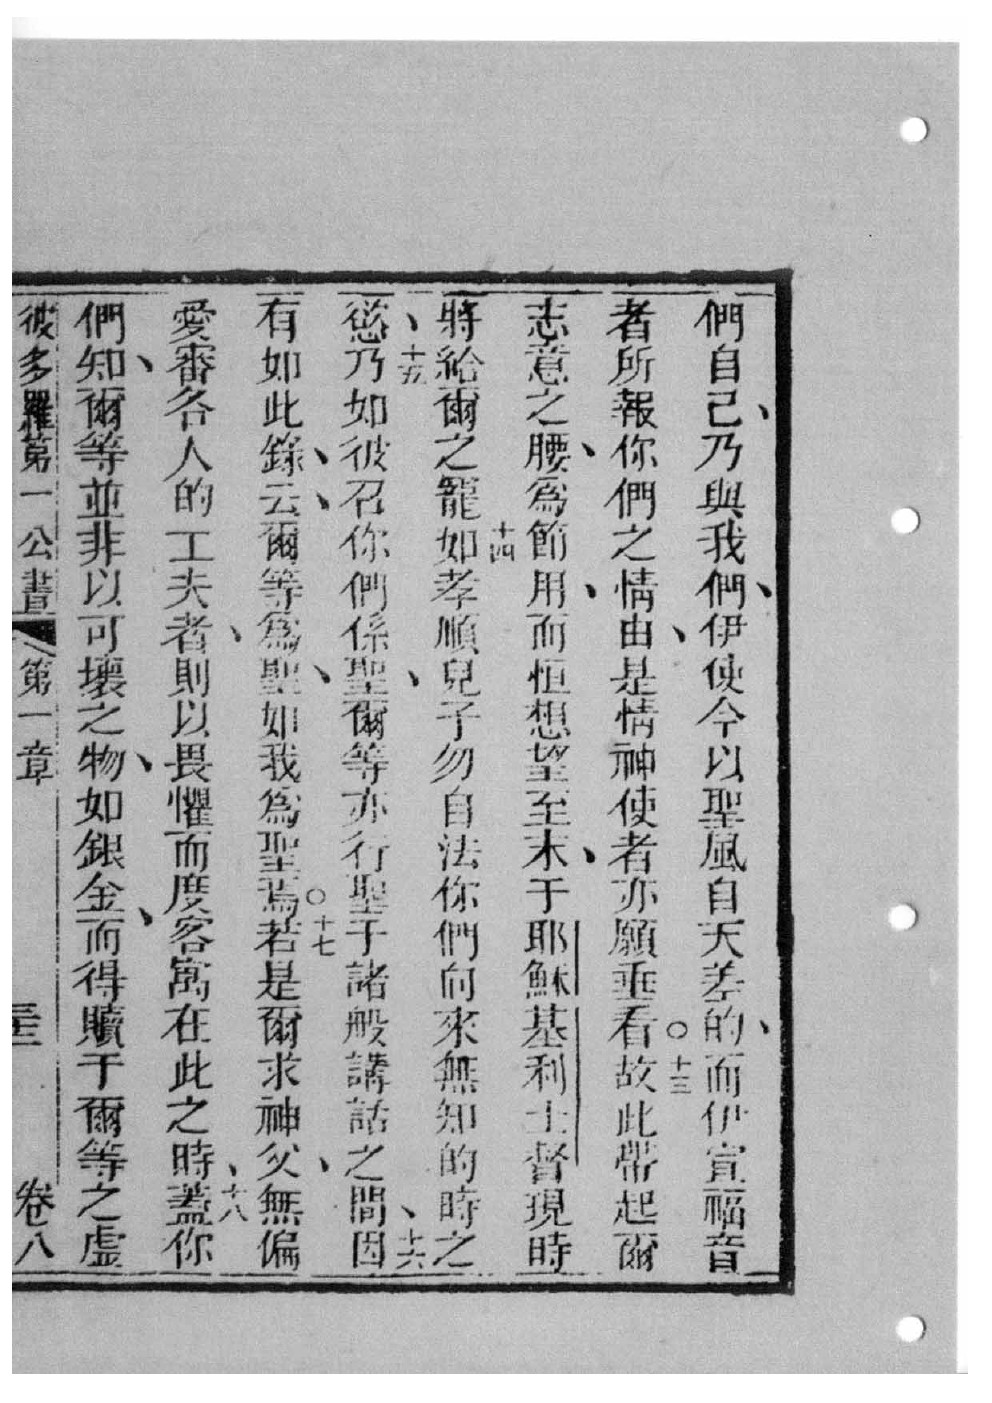 們自己、乃與我們、伊使今以聖風自天差的、而伊宣福音
者所報你們之情由、是情神使者亦願垂看○十三故此帶起爾
志意之腰、爲節用、而恒想望至末、于耶穌基利士督現時
將給爾之寵十四如孝順兒子勿自法你們向來無知的時之
慾、十五乃如彼召你們係聖、爾等亦行聖于諸般講話之間、十六因
有如此錄、云、爾等爲聖、如我爲聖焉○十七若是爾求神父、無偏
愛審各人的工夫者、則以畏懼而度客寓在此之時、十八蓋你
們知、爾等並非以可壞之物、如銀金、而得贖于爾等之虛
彼多羅第一公書 第一章 三 卷八